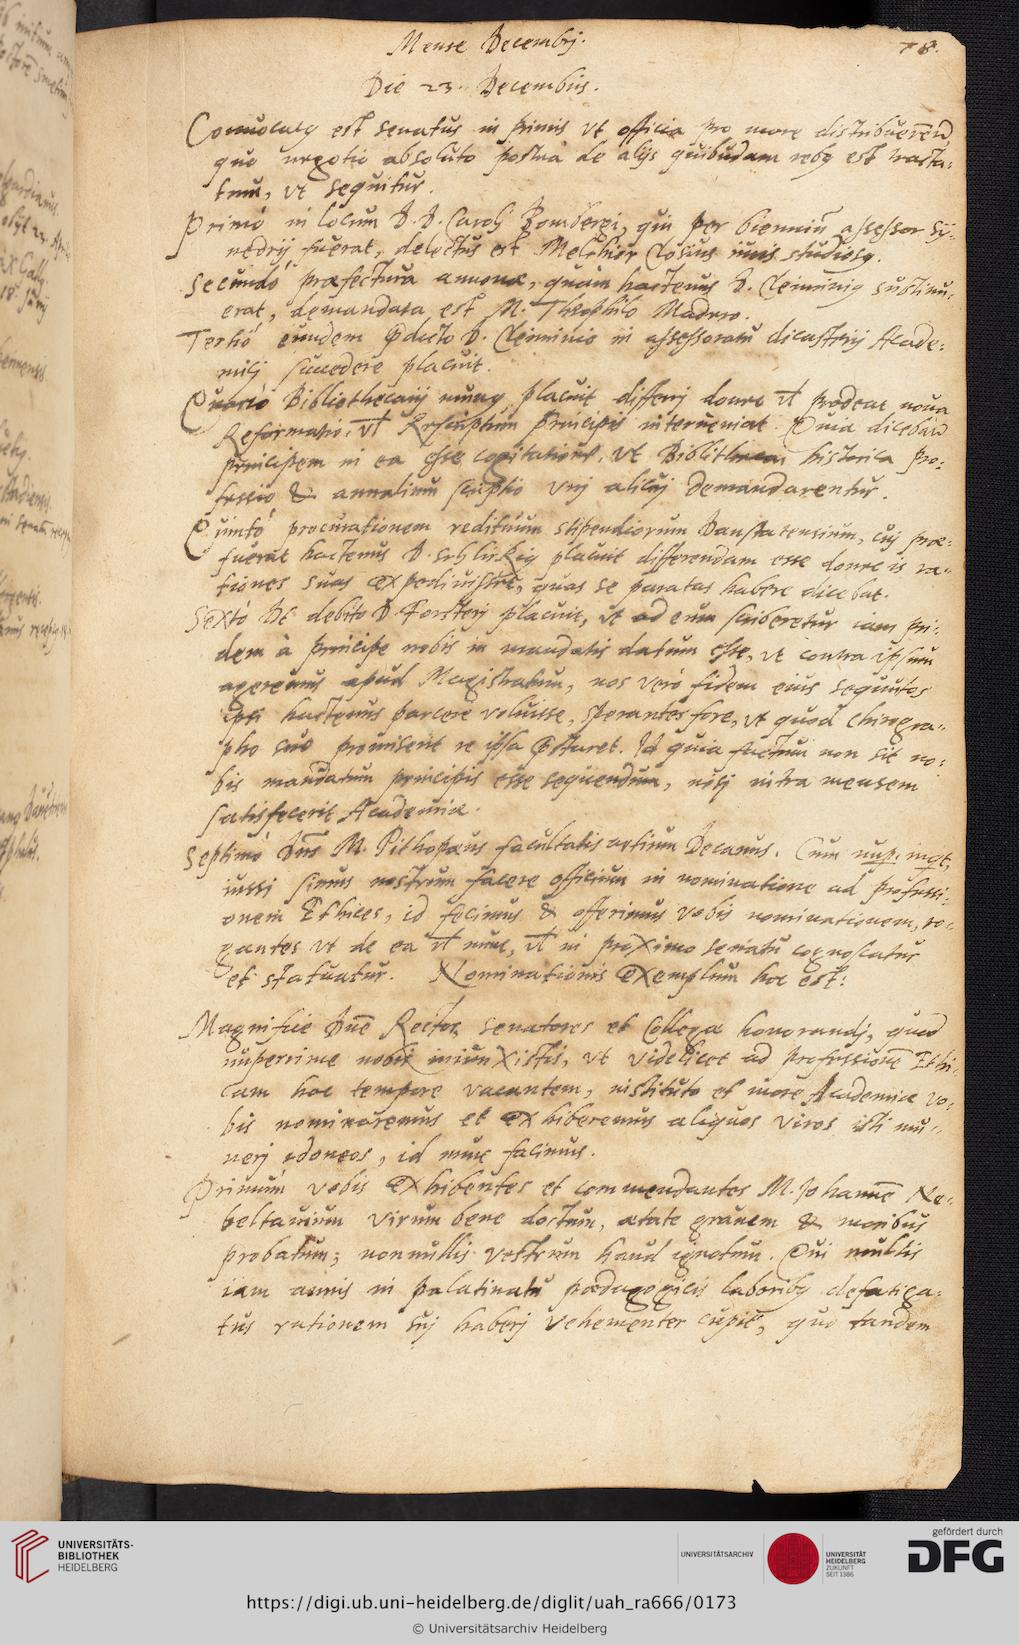 Mense Decembrj.
78.
Die 23. Decembris.
Conuocatq est senatus in primis vt officia pro more distribuerent
quo negotio absoluto postea de alijs quibusdam rebq est tracta-
tum, vt sequitur.
Primò in locum D. D. Carolj Bombergi, qui per bienniū assessor sy-
nedrij fuerat, delectus est Melchior Closius iuris studiosq.
Secundò praefectura annonae, quam hactenus D. Cleiminiq sustinu-
erat, demandata est M. Theophilo Madero.
Tertiò eundem D. Cleiminio in assessoratu dicasterij Acade-
micj succedere placuit.
Quartò Bibliothecarij munq placuit differrj donec vl prodeat noua
Reformatio, vl Rescriptum Principis interueniat. Quia dicebatur
principem in ea esse cogitatione, vt historica pro-
fessio & annalium scriptio vnj alicuj demandarentur.
Quintò procurationem redituum stipendiorum Danstatensium, cuj prae-
fuerat hactenus D. placuit differendam esse donec is ra-
tiones suas expediuisset, quas se paratas habere dicebat.
Sextò De debito D. Forsterj placuit, vt ad eum scriberetur iam pri-
dem à principe nobis in mandatis datum esse, vt contra ipsum
ageremus apud Magistratum, nos verò fidem eius sequutos
ipsi hactenus parcere voluisse, sperantes fore, vt quod chirogra-
pho suo promiserit re ipsa praestaret. Id quia factum non sit no-
bis mandatum principis esse sequendum, nisj intra mensem
satisfecerit Academiae.
Septimò Dns M. Pithopaeus facultatis artium Decanus. Cum nup.
iussi simus nostrum facere officium in nominatione ad professi-
onem Ethices, id fecimus & offerimus vobis nominationem, ro-
gantes vt de ea vl nunc, vl in proximo senatu cognoscatur
et statuatur. Nominationis exemplum hoc est:
Magnifice Dne Rector senatores et Collega honorandj, quod
nuperrime nobis iniunxistis, vt videlicet ad professionē Ethi-
cam hoc tempore vacantem, instituto et more Academiae vo-
bis nominaremus et exhiberemus aliquos viros isti mu-
nerj idoneos, id nunc facimus.
Primùm vobis exhibentes et commendantes M. Johannē Ne-
beltauium virum bene doctum, aetate grauem & moribus
probatum; nonnullis vestrum haud ignotum. Qui multis
iam annis in palatinatu paedagogicis laboribq defatiga-
tus rationem suj haberj vehementer cupit, quo tandem
UNIVERSITÄTS-
BIBLIOTHEK
HEIDELBERG
UNIVERSITÄTSARCHIV
UNIVERSITÄT
HEIDELBERG
ZUKUNFT
SEIT 1386
gefördert durch
DFG
https://digi.ub.uni-heidelberg.de/diglit/uah_ra666/0173
© Universitätsarchiv Heidelberg